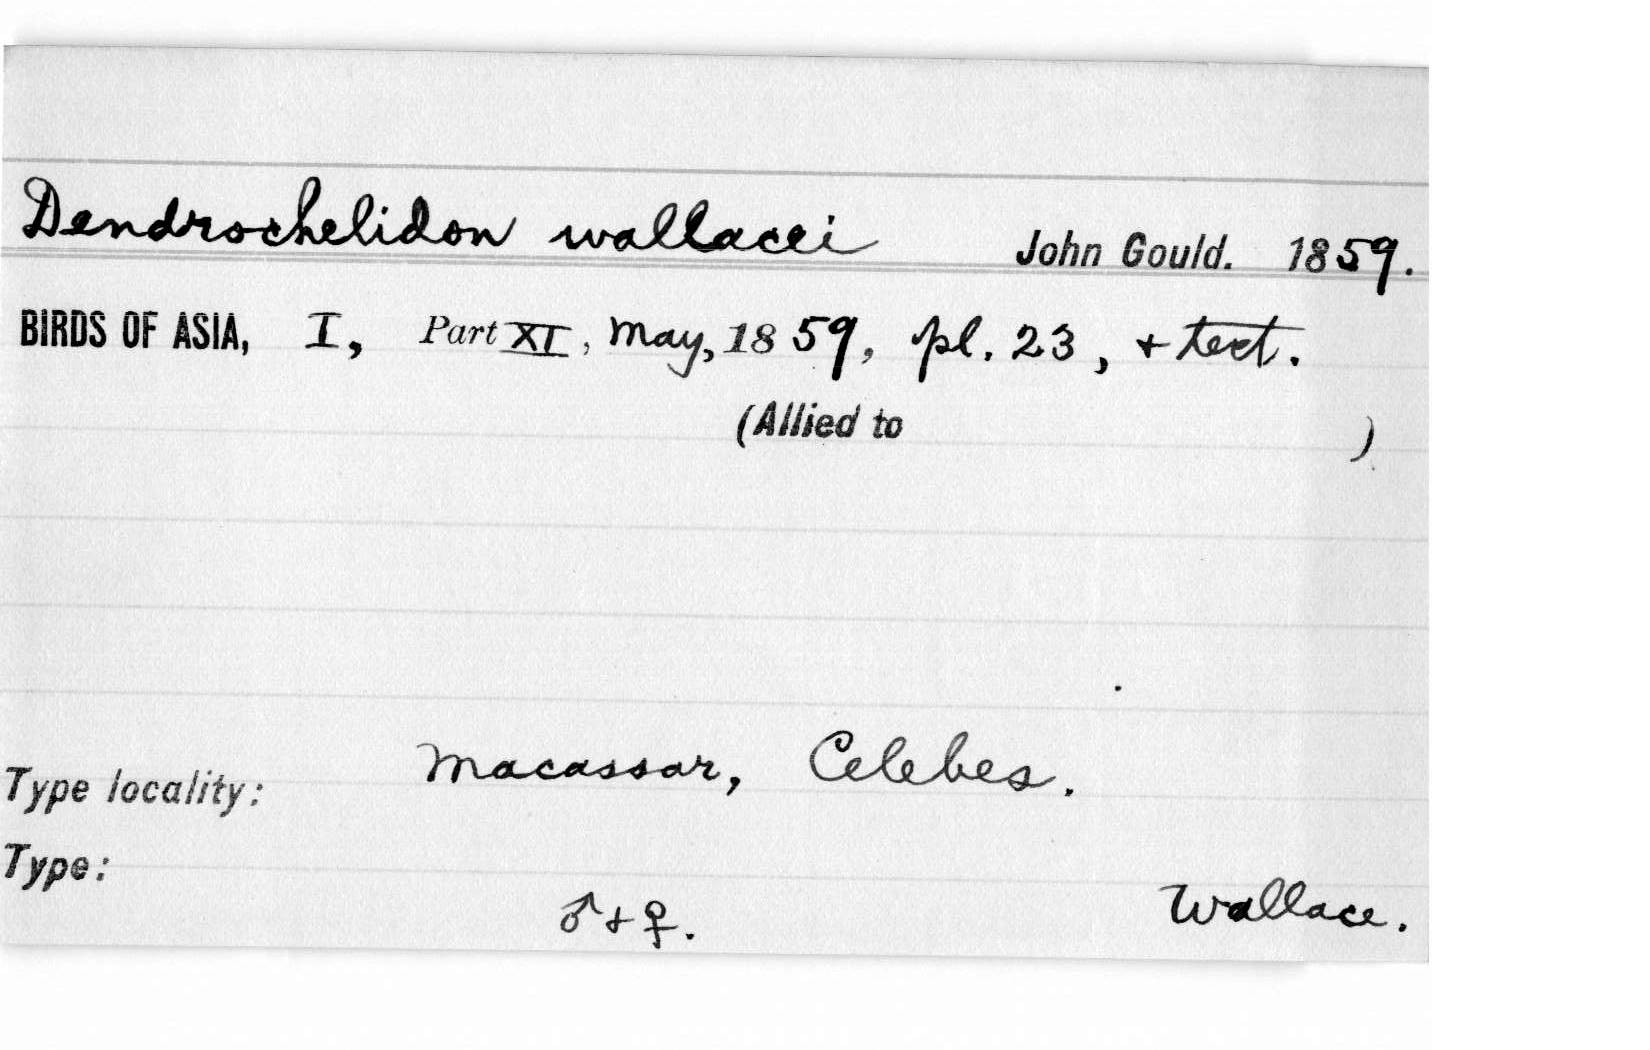 Dendrochelidon wallacei John Gould. 1859.
BIRDS OF ASIA, I, Part XI, May, 1859, pl. 23, + text.
(Allied to )
Type locality: Macassar, Celebes.
Type:
♂ + ♀. Wallace.